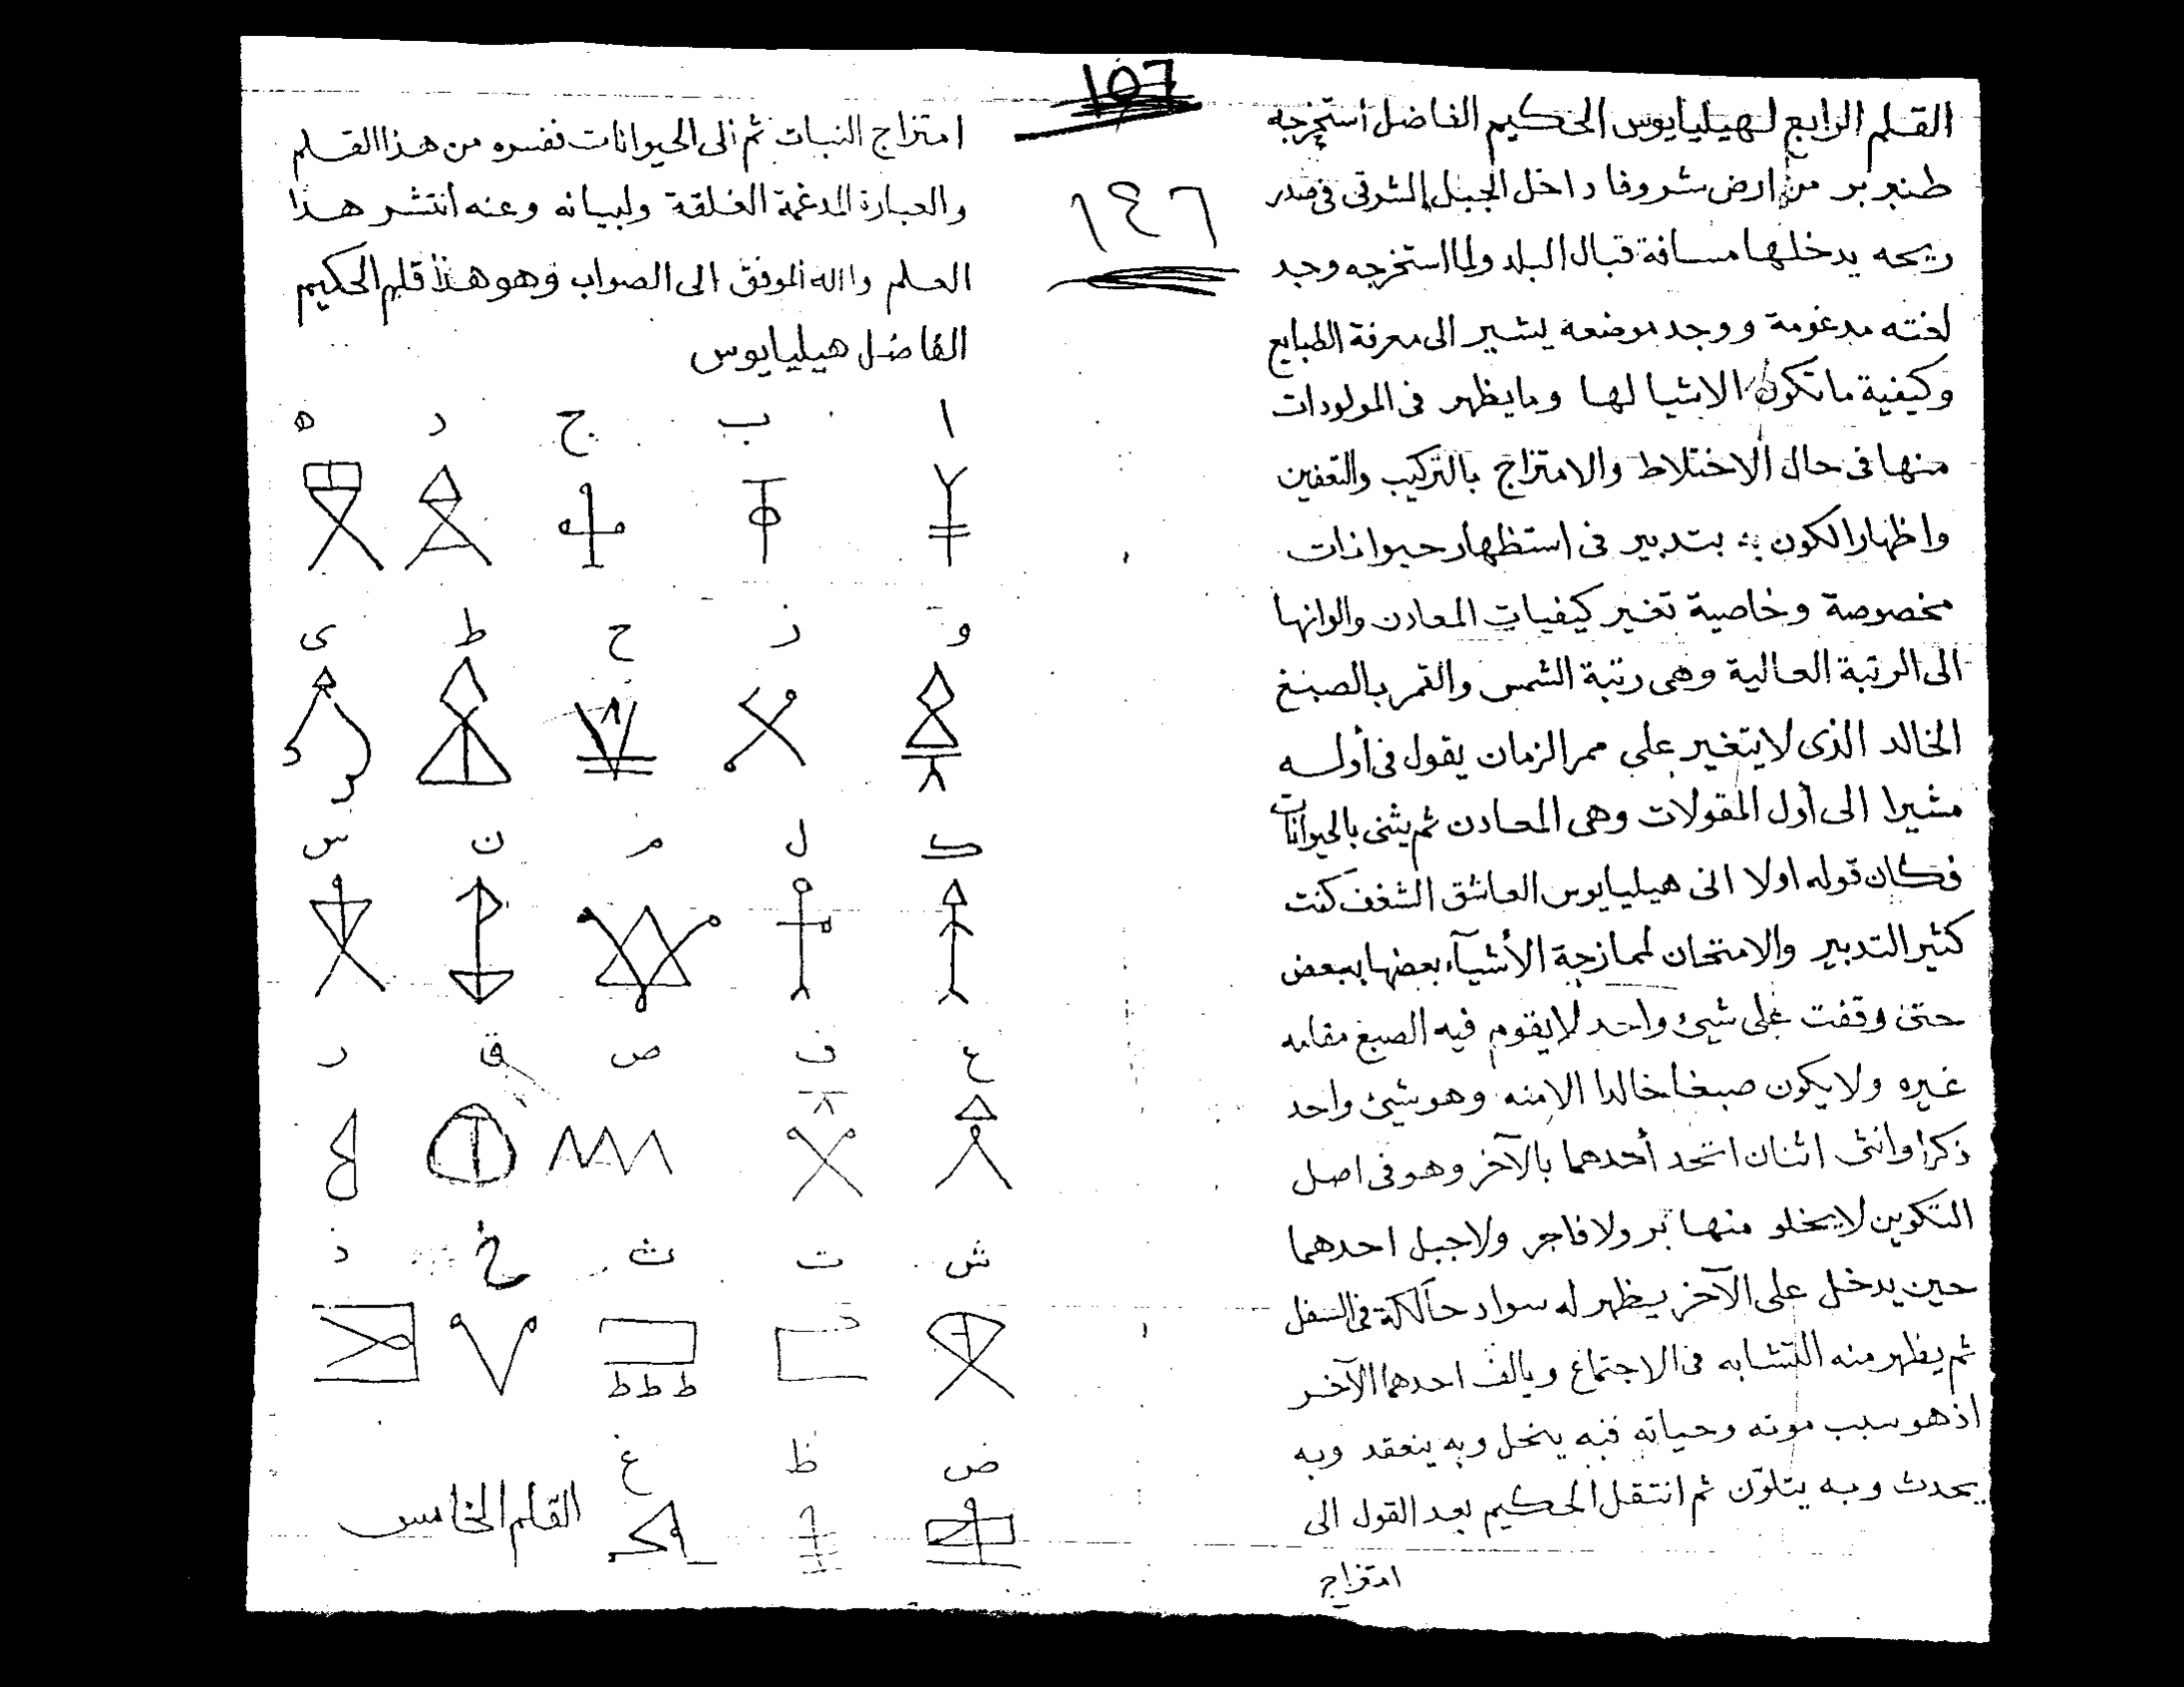 القلم الرابع لهيليايوس الحكيم الفاضل استخرجه
من ارض شروفا داخل الجبل الشرقى فى صدر
ريحه يدخلها مسافة قبال البلد ولما استخرجه وجد
لغته مدغومة ووجد موضعه يشير الى معرفة الطبايع
وكيفية ما تكون الاشيا لها وما يظهر فى المولودات
منها فى حال الاختلاط والامتزاج بالتركيب والتعفين
واظهار الكون به بتدبير فى استظهار حيوانات
مخصوصة وخاصية تغير كيفيات المعادن والوانها
الى الرتبة العالية وهى رتبة الشمس والقمر بالصبغ
الخالد الذى لا يتغير على ممر الزمان يقول فى أوله
مشيرا الى أول المقولات وهى المعادن ثم يثنى بالحيوانات
فكان قوله اولا انى هيليايوس العاشق الشغف كنت
كثير التدبير والامتحان لممازجة الأشيآء بعضها ببعض
حتى وقفت على شيئ واحد لا يقوم فيه الصبغ مقامه
غيره ولا يكون صبغا خالدا الا منه وهو شيئ واحد
ذكرا وانثى اثنان اتحد أحدهما بالآخر وهو فى اصل
التكوين لا يخلو منها بر ولا فاجر ولا جبل احدهما
حين يدخل على الآخر يظهر له سواد حالك فى السفل
ثم يظهر منه التشابه فى الاجتماع ويالف احدهما الآخر
اذ هو سبب موته وحياته فبه ينحل وبه ينعقد وبه
يحدث وبه يتلوّن ثم انتقل الحكيم بعد القول الى
امتزاج
١٥٦
١٤٦
امتزاج النبات ثم الى الحيوانات نفسره من هذا القلم
والعبارة المدغمة الغلقة ولبيانه وعنه انتشر هذا
العلم والله الموفق الى الصواب وهو هذا قلم الحكيم
الفاضل هيليايوس
ا ب ج د ه
و ز ح ط ى
ك ل م ن س
ع ف ص ق ر
ش ت ث خ ذ
ض ظ غ
القلم الخامس